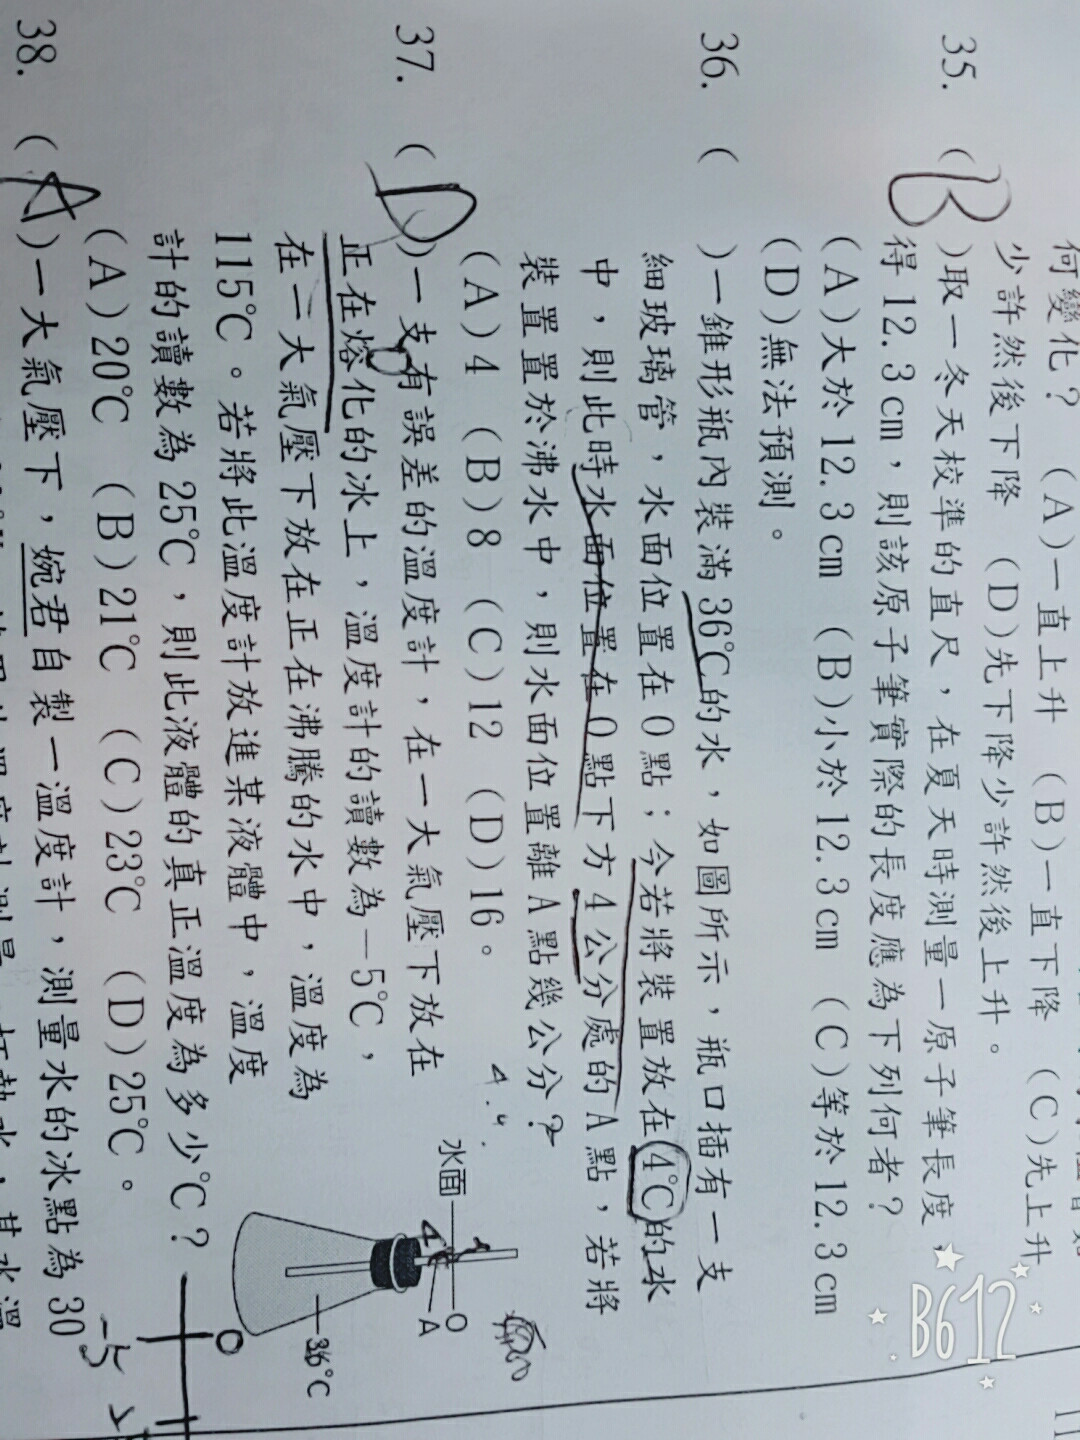 何變化？ (A)一直上升 (B)一直下降 (C)先上升
少許然後下降 (D)先下降少許然後上升。
35. (B)取一冬天校準的直尺，在夏天時測量一原子筆長度，
得12.3cm，則該原子筆實際的長度應為下列何者？
(A)大於12.3cm (B)小於12.3cm (C)等於12.3cm
(D)無法預測。
36. ( )一錐形瓶內裝滿36℃的水，如圖所示，瓶口插有一支
細玻璃管，水面位置在O點；今若將裝置放在4℃的水
中，則此時水面位置在O點下方4公分處的A點，若將
裝置置於沸水中，則水面位置離A點幾公分？
(A)4 (B)8 (C)12 (D)16。
水面
O
A
4
36℃
37. (D)一支有誤差的溫度計，在一大氣壓下放在
正在熔化的冰上，溫度計的讀數為－5℃，
在一大氣壓下放在正在沸騰的水中，溫度為
115℃。若將此溫度計放進某液體中，溫度
計的讀數為25℃，則此液體的真正溫度為多少℃？
(A)20℃ (B)21℃ (C)23℃ (D)25℃。
0
-5
38. (A)一大氣壓下，婉君自製一溫度計，測量水的冰點為30
B612